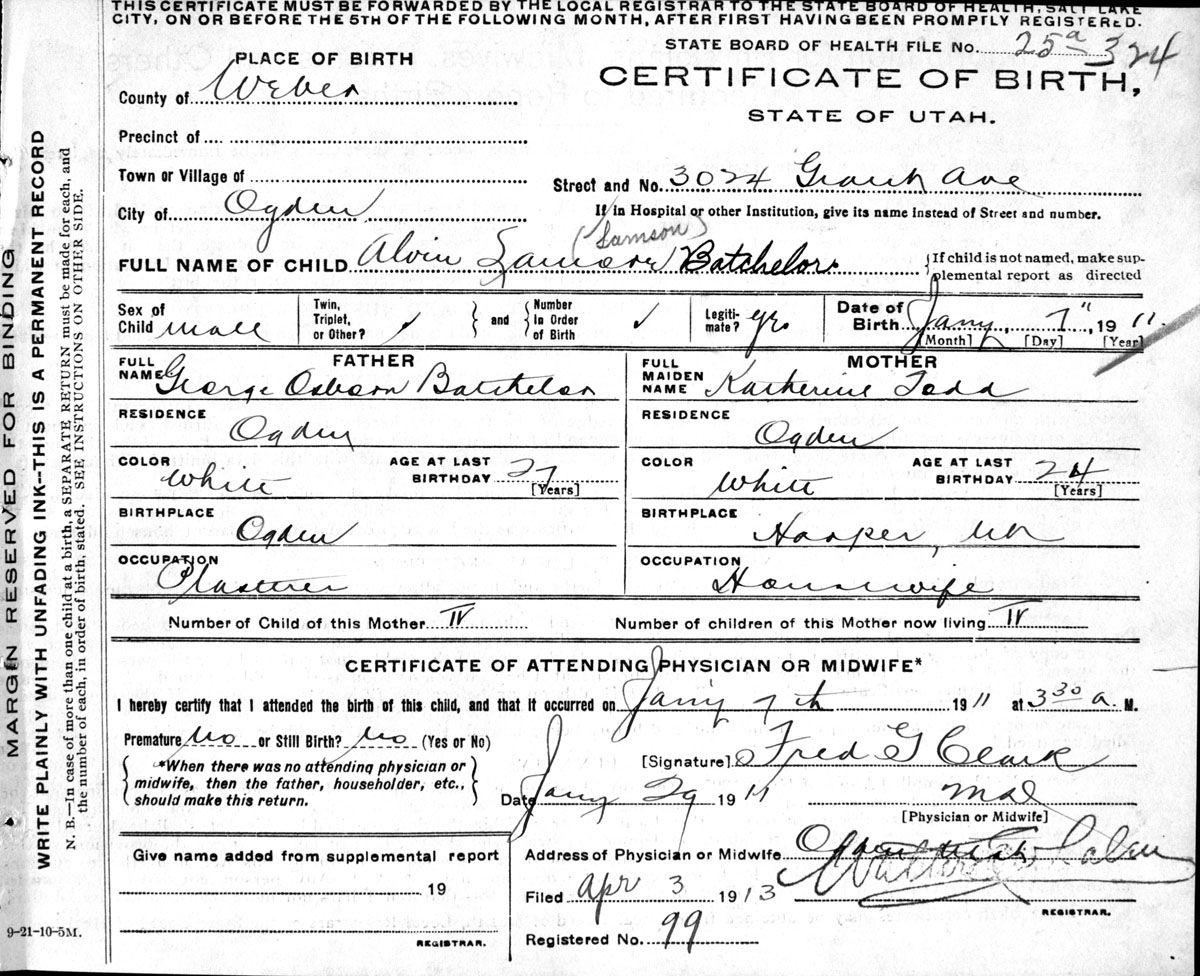 THIS CERTIFICATE MUST BE FORWARDED BY THE LOCAL REGISTRAR TO THE STATE BOARD OF HEALTH, SALT LAKE
CITY, ON OR BEFORE THE 5TH OF THE FOLLOWING MONTH, AFTER FIRST HAVING BEEN PROMPTLY REGISTERED.
STATE BOARD OF HEALTH FILE No. 25a 324
PLACE OF BIRTH
CERTIFICATE OF BIRTH,
STATE OF UTAH.
County of Weber
Precinct of
Town or Village of
Street and No. 3024 Grant Ave
City of Ogden
If in Hospital or other Institution, give its name instead of Street and number.
(Lamson)
FULL NAME OF CHILD Alvin Batchelor
{If child is not named, make supplemental report as directed
Sex of Child male
Twin, Triplet, or Other? } and { Number In Order of Birth ✓
Legitimate? yes
Date of Birth Jany 7", 1911
[Month] [Day] [Year]
FATHER
FULL NAME George Osborn Batchelor
RESIDENCE
Ogden
COLOR White AGE AT LAST BIRTHDAY 27
[Years]
BIRTHPLACE
Ogden
OCCUPATION
Plasterer
MOTHER
FULL MAIDEN NAME Katherine Todd
RESIDENCE
Ogden
COLOR White AGE AT LAST BIRTHDAY 24
[Years]
BIRTHPLACE
Harper, Ut
OCCUPATION
Housewife
Number of Child of this Mother IV Number of children of this Mother now living IV
CERTIFICATE OF ATTENDING PHYSICIAN OR MIDWIFE*
I hereby certify that I attended the birth of this child, and that it occurred on Jany 7th 1911 at 3 30 a. M.
Premature No or Still Birth? No (Yes or No)
{*When there was no attending physician or
midwife, then the father, householder, etc.,
should make this return.}
[Signature] Fred G Clark
Date Jany 29 1911
[Physician or Midwife]
Give name added from supplemental report
19
REGISTRAR.
Address of Physician or Midwife
Filed Apr 3 1913
REGISTRAR.
Registered No. 99
9-21-10-5M.
MARGIN RESERVED FOR BINDING
WRITE PLAINLY WITH UNFADING INK--THIS IS A PERMANENT RECORD
N. B.--In case of more than one child at a birth, a SEPARATE RETURN must be made for each, and
the number of each, in order of birth, stated. SEE INSTRUCTIONS ON OTHER SIDE.